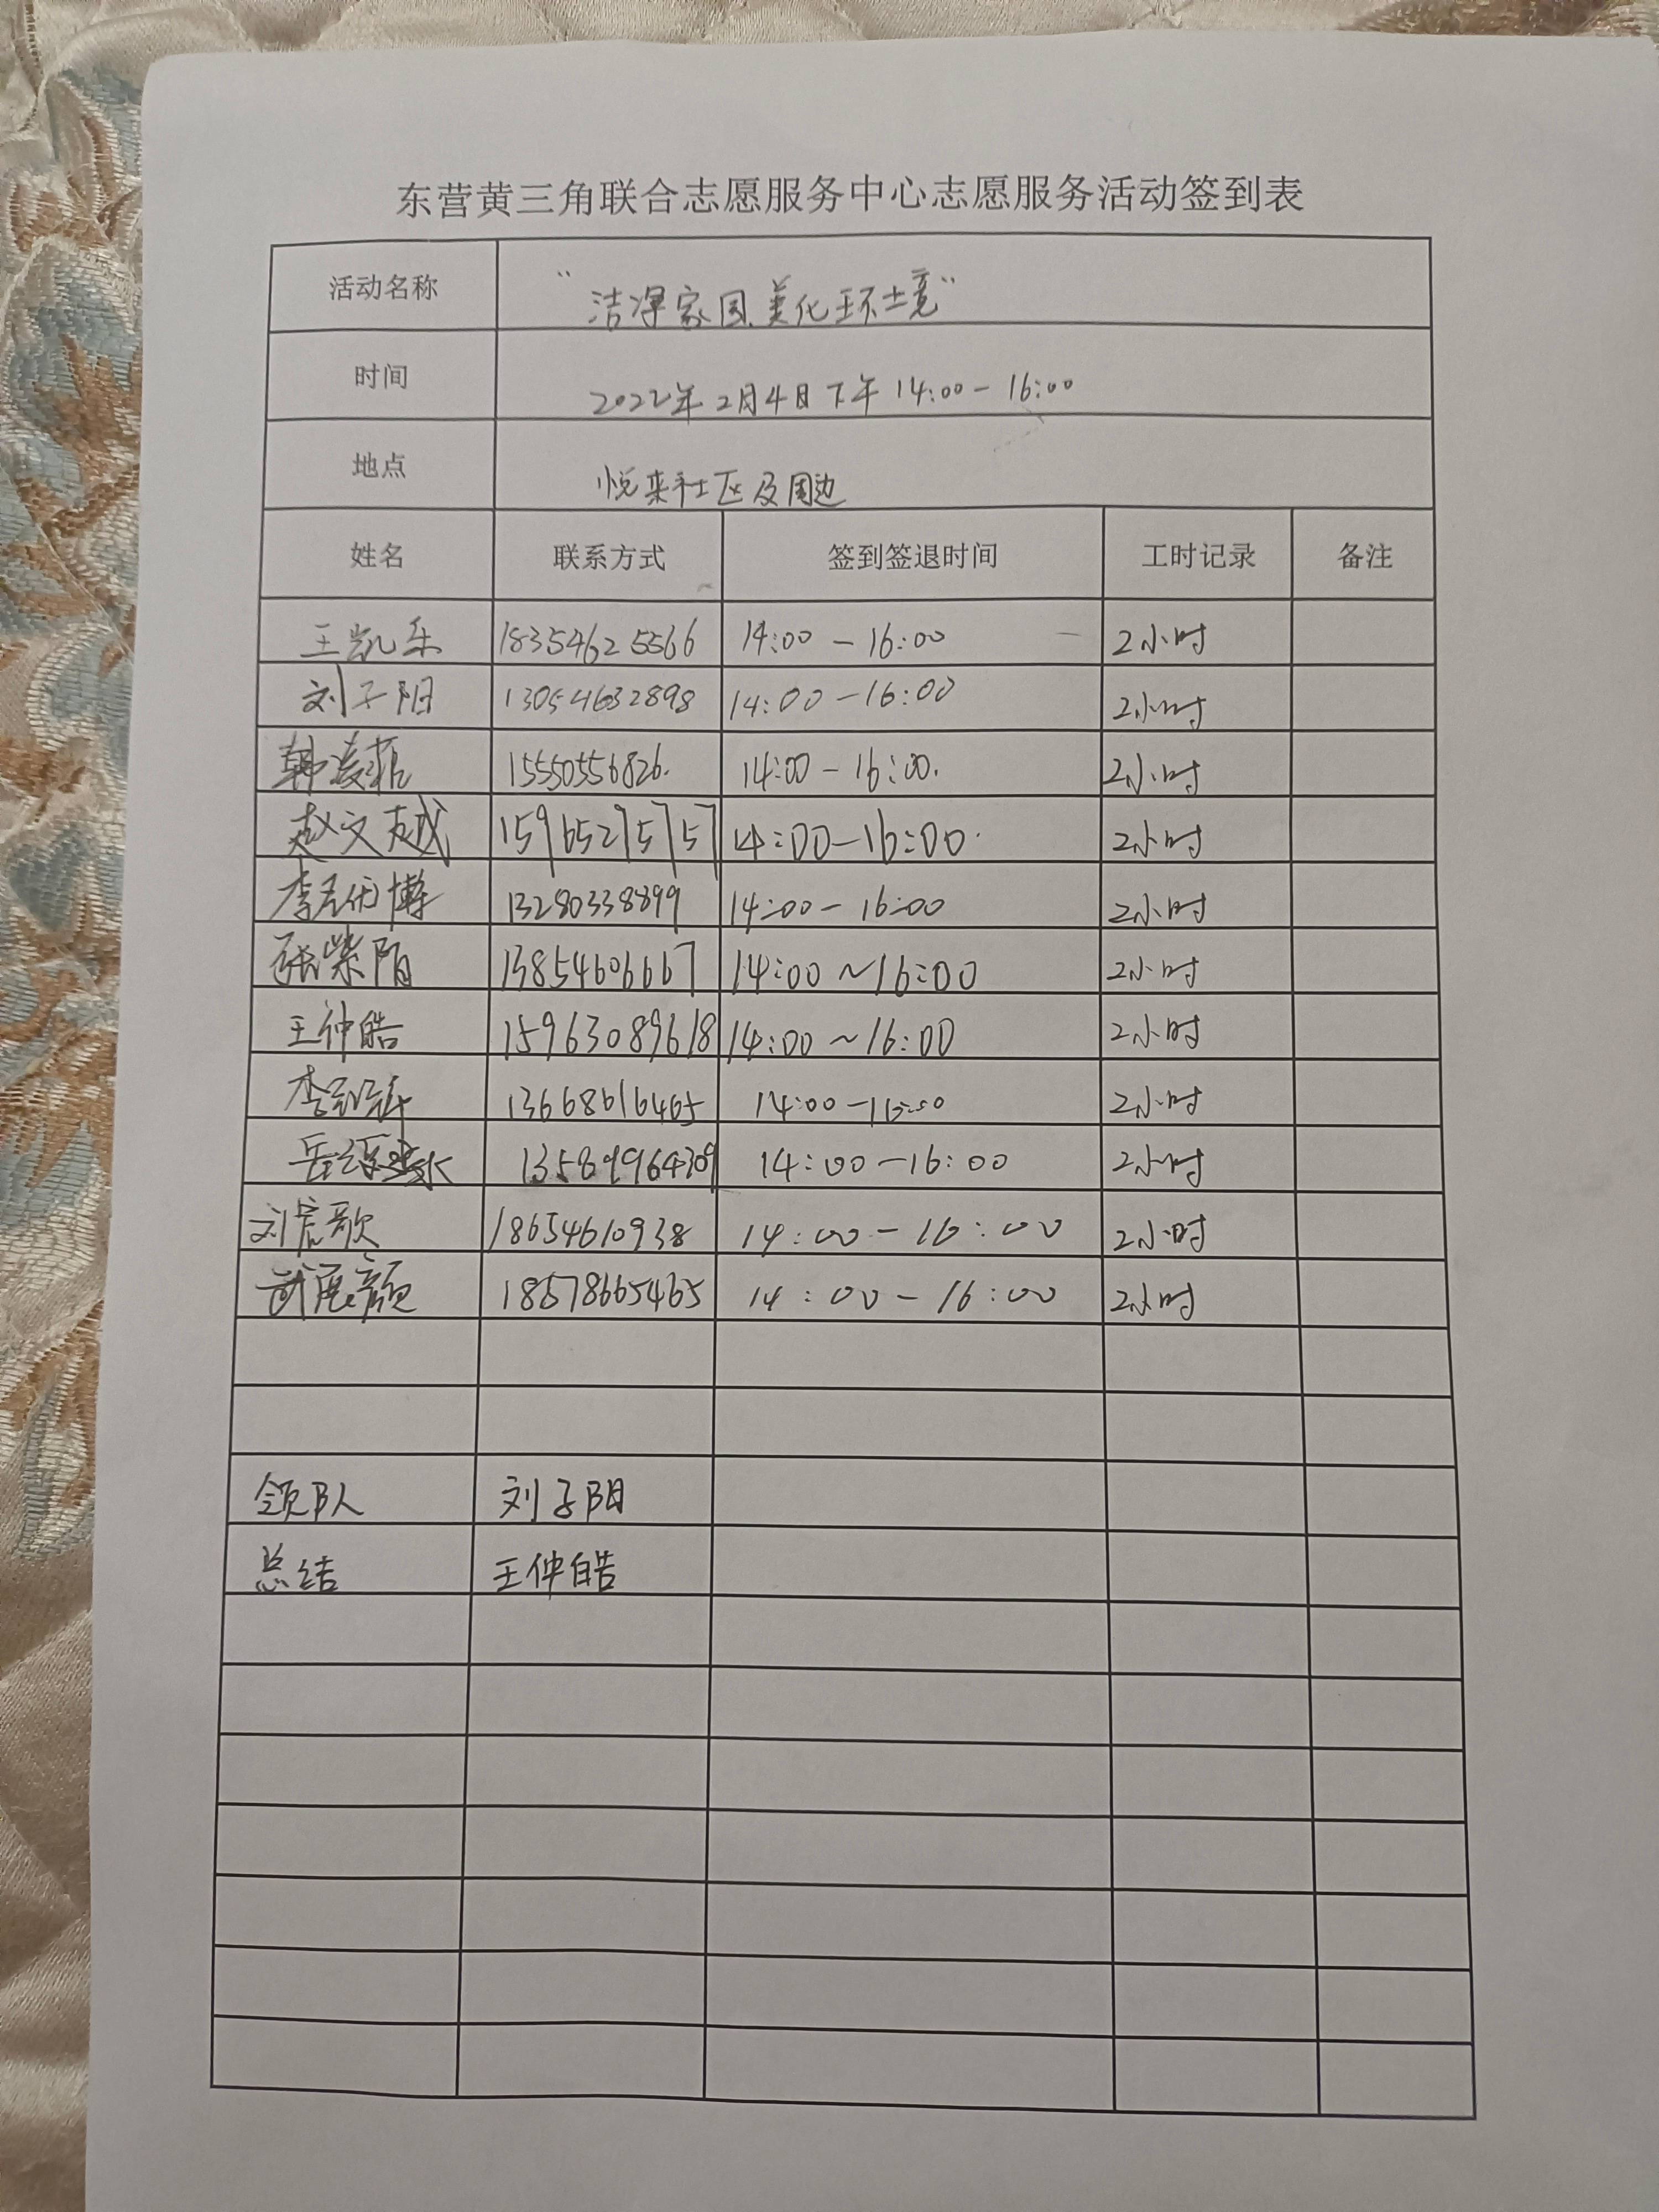 东营黄三角联合志愿服务中心志愿服务活动签到表
活动名称 “洁净家园,美化环境”
时间 2022年2月4日下午14:00-16:00
地点 悦来社区及周边
姓名 联系方式 签到签退时间 工时记录 备注
王凯乐 18354625566 14:00-16:00 2小时
刘子阳 13054632898 14:00-16:00 2小时
韩凌菲 15550556826. 14:00-16:00. 2小时
赵文越 15965275757 14:00-16:00. 2小时
李 博 13280338899 14:00-16:00 2小时
张紫阳 13854606667 14:00~16:00 2小时
王仲皓 15963089618 14:00~16:00 2小时
李 13668616465 14:00-16:00 2小时
岳 13589964309 14:00-16:00 2小时
刘宸歌 18654610938 14:00-16:00 2小时
武 颜 18578665465 14:00-16:00 2小时
领队 刘子阳
总结 王仲皓